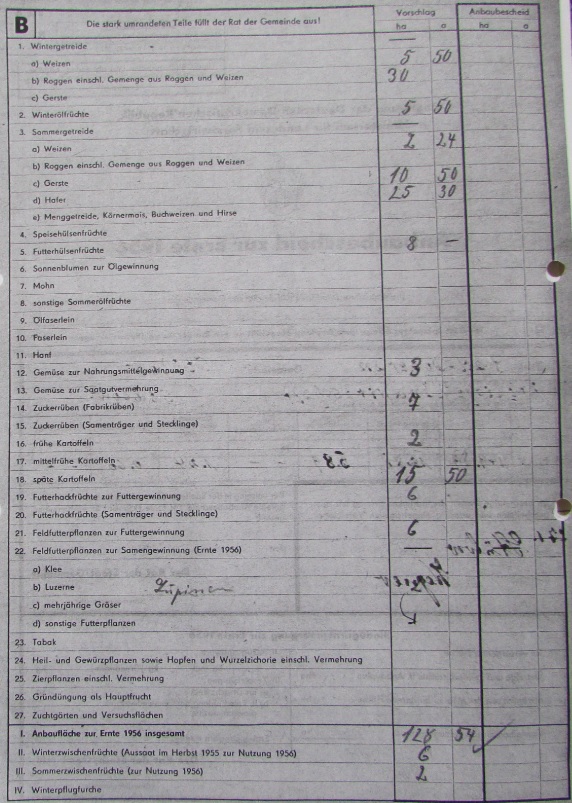 B Die stark umrandeten Teile füllt der Rat der Gemeinde aus! Vorschlag Anbaubescheid
ha a ha a
1. Wintergetreide —
a) Weizen 5 50
b) Roggen einschl. Gemenge aus Roggen und Weizen 30
c) Gerste
2. Winterölfrüchte 5 50
3. Sommergetreide —
a) Weizen 2 24
b) Roggen einschl. Gemenge aus Roggen und Weizen
c) Gerste 10 50
d) Hafer 25 30
e) Menggetreide, Körnermais, Buchweizen und Hirse
4. Speisehülsenfrüchte
5. Futterhülsenfrüchte 8 —
6. Sonnenblumen zur Ölgewinnung
7. Mohn
8. sonstige Sommerölfrüchte
9. Ölfaserlein
10. Faserlein
11. Hanf
12. Gemüse zur Nahrungsmittelgewinnung 3
13. Gemüse zur Saatgutvermehrung
14. Zuckerrüben (Fabrikrüben) 7
15. Zuckerrüben (Samenträger und Stecklinge)
16. frühe Kartoffeln 2
17. mittelfrühe Kartoffeln
18. späte Kartoffeln 15 50
19. Futterhackfrüchte zur Futtergewinnung 6
20. Futterhackfrüchte (Samenträger und Stecklinge)
21. Feldfutterpflanzen zur Futtergewinnung 6
22. Feldfutterpflanzen zur Samengewinnung (Ernte 1956) —
a) Klee
b) Luzerne Lupinen
c) mehrjährige Gräser
d) sonstige Futterpflanzen
23. Tabak
24. Heil- und Gewürzpflanzen sowie Hopfen und Wurzelzichorie einschl. Vermehrung
25. Zierpflanzen einschl. Vermehrung
26. Gründüngung als Hauptfrucht
27. Zuchtgärten und Versuchsflächen
I. Anbaufläche zur Ernte 1956 insgesamt 128 54
II. Winterzwischenfrüchte (Aussaat im Herbst 1955 zur Nutzung 1956) 6
III. Sommerzwischenfrüchte (zur Nutzung 1956) 2
IV. Winterpflugfurche